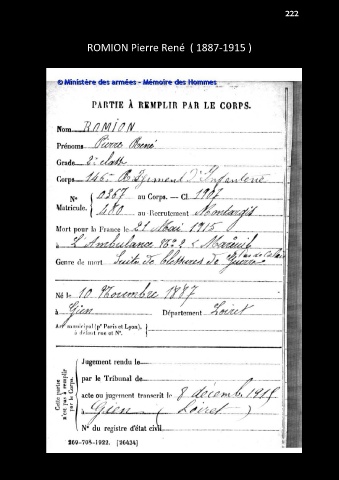 222
ROMION Pierre René ( 1887-1915 )
© Ministère des armées - Mémoire des Hommes
PARTIE À REMPLIR PAR LE CORPS.
Nom ROMION
Prénoms Pierre René
Grade 2e classe
Corps 146e Régiment d'Infanterie
N° 0367 au Corps. — Cl. 1907
Matricule. 480 au Recrutement Montargis
Mort pour la France le 21 Mai 1915
à L'Ambulance n° 2 à Mareuil
Pas de Calais
Genre de mort Suite de blessures de Guerre
Né le 10 Novembre 1887
à Gien Département Loiret
Arr municipal (pr Paris et Lyon),
à défaut rue et N°.
Cette partie
n'est pas à remplir
par le Corps.
Jugement rendu le
par le Tribunal de
acte ou jugement transcrit le 8 décembre 1915
à Gien ( Loiret )
N° du registre d'état civil
269-708-1922. [26434]